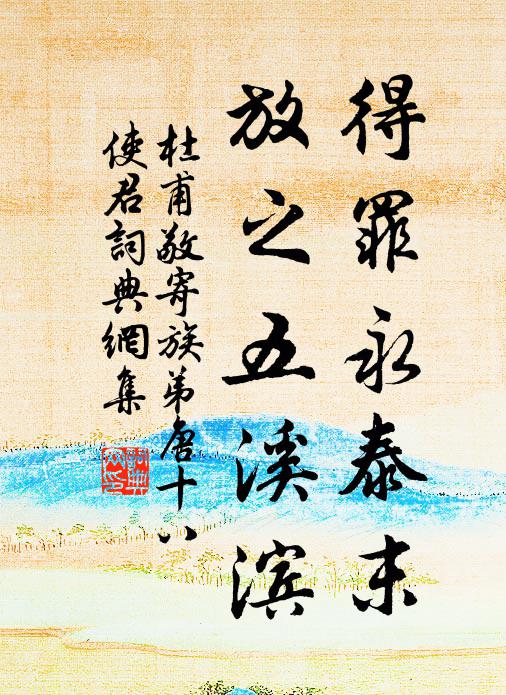 得罪永泰末
放之五溪滨
杜甫敬寄族弟唐十八
使君詞典網集